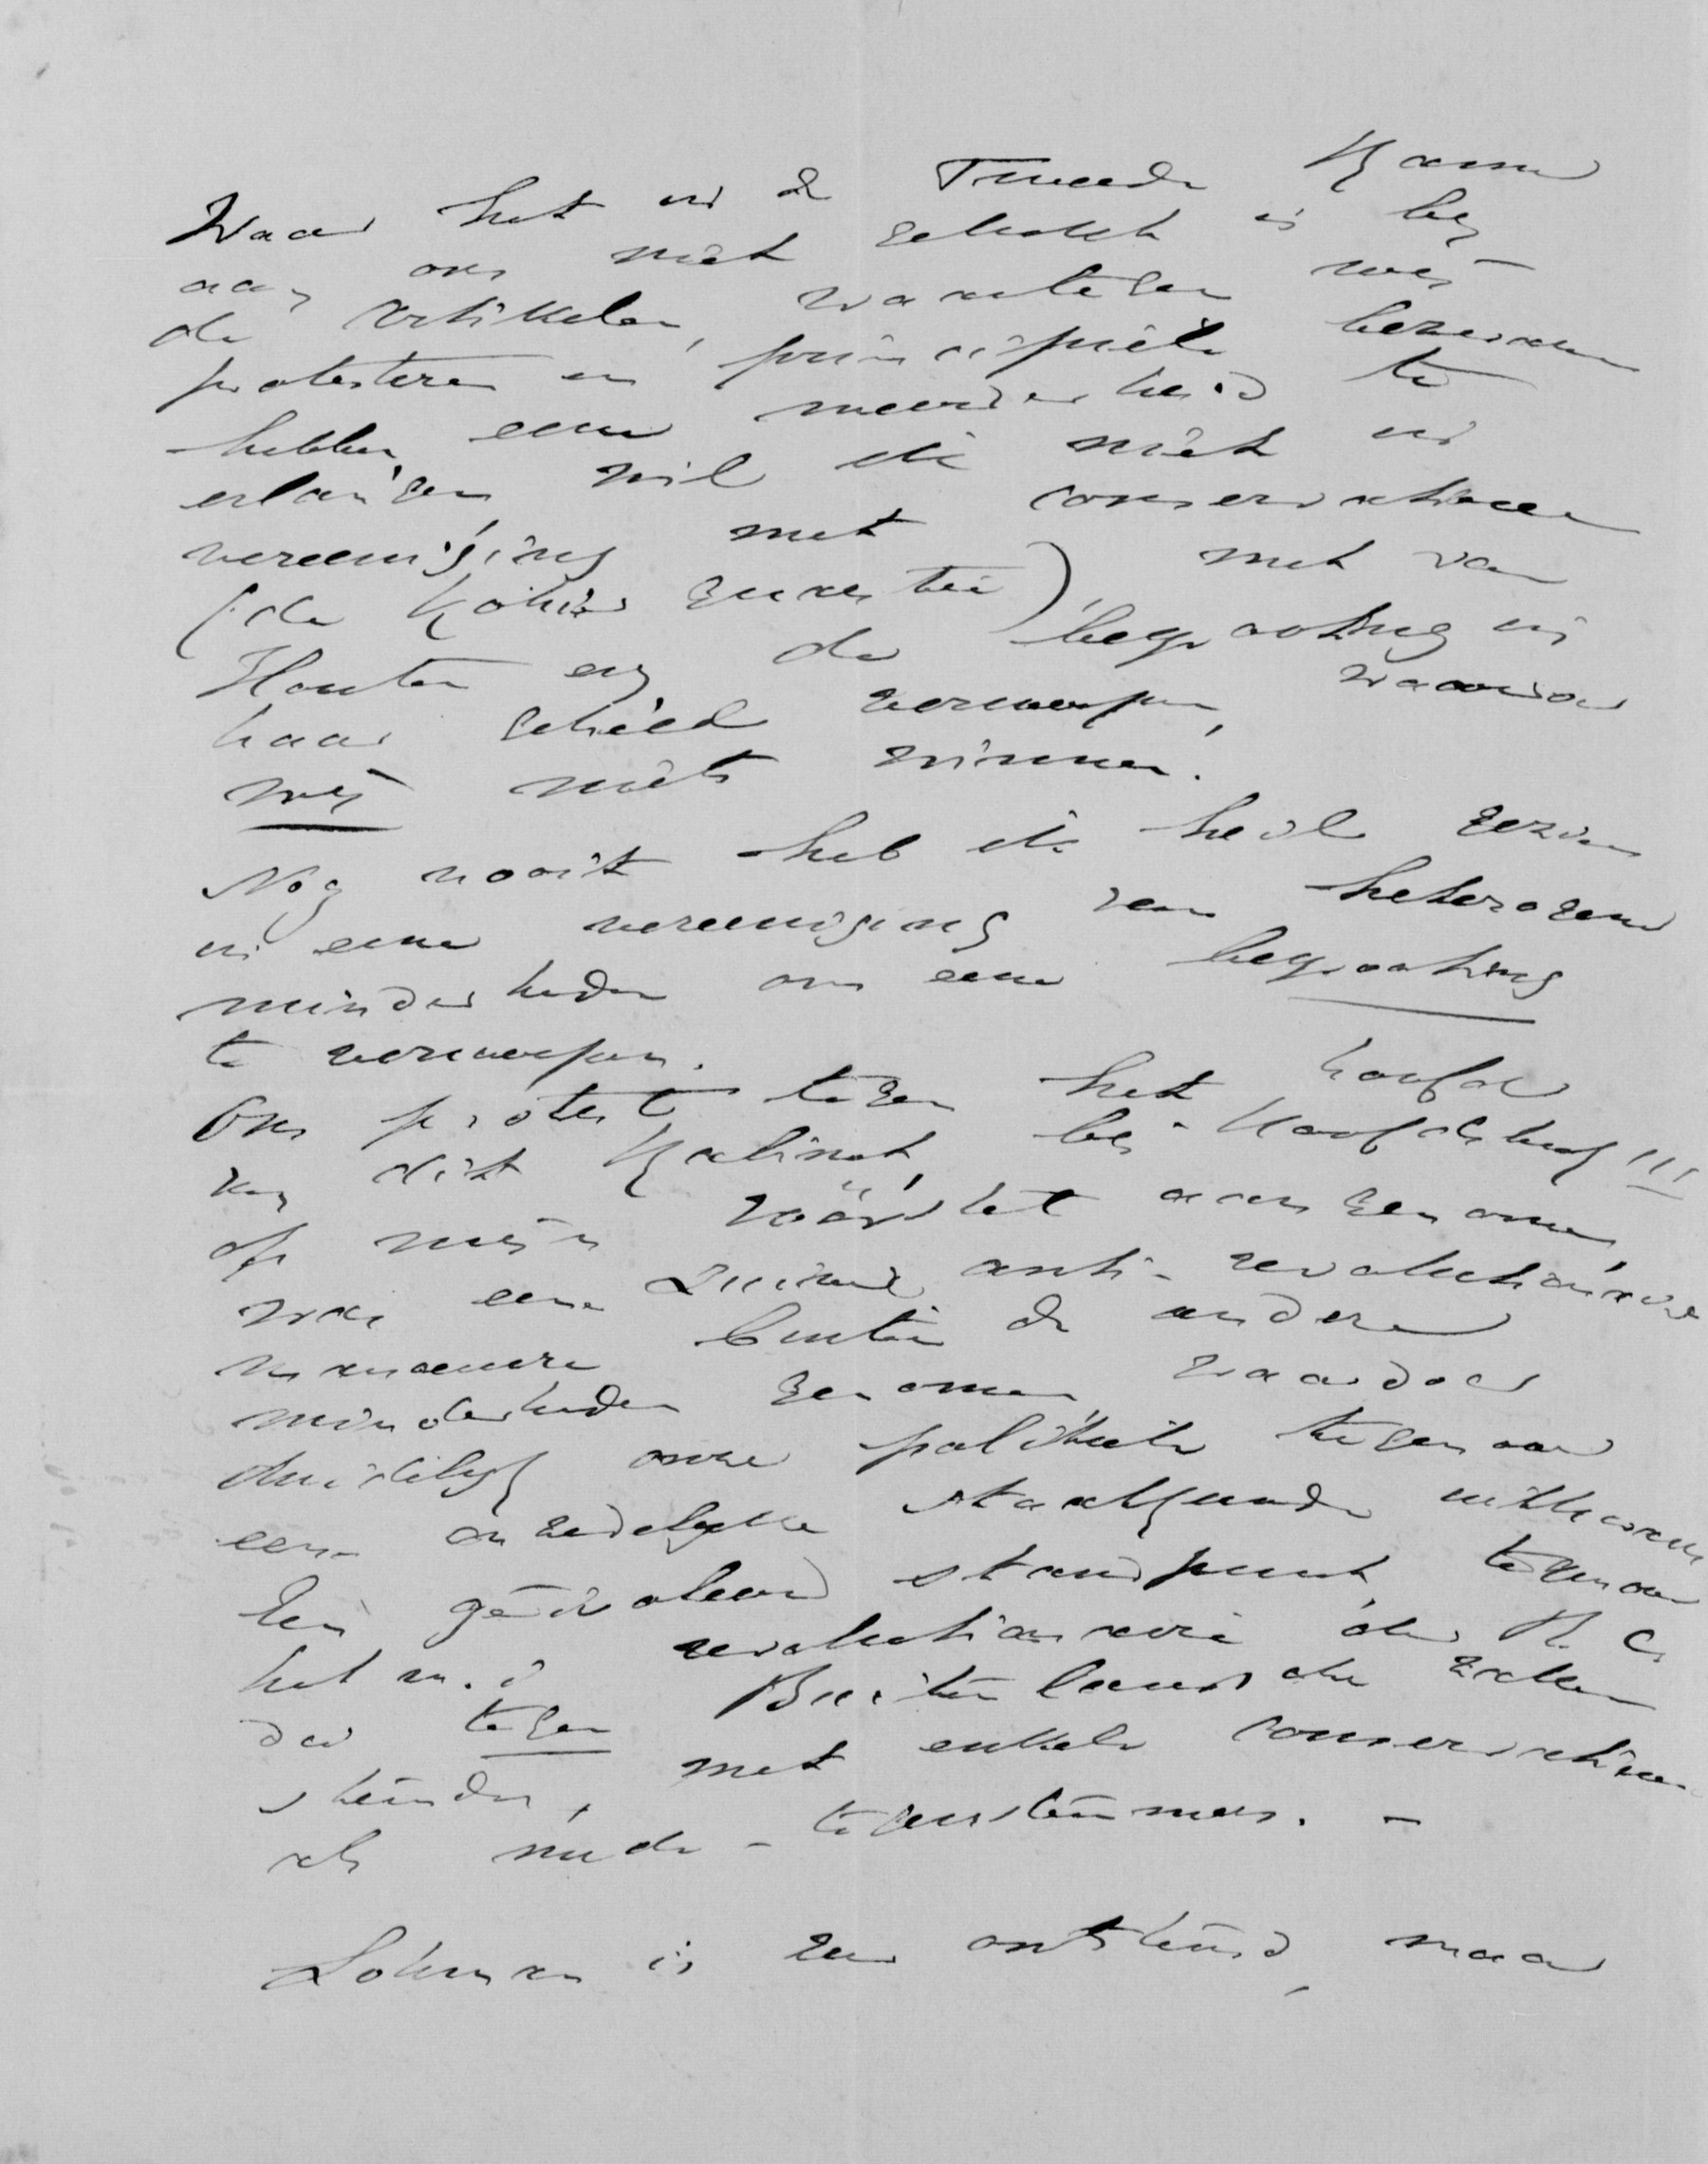 Waar het in de Tweede Kamer
aan ons niet gelukt is bij
de artikelen, waartegen wij
protesteren en principieele bezwaren
hebben eene meerderheid te
erlangen, wil ik niet in
vereeniging met conservatieven
(de Kohier quaestie), met van
Houten enz de begrooting in
haar geheel verwerpen, waarvan
wij niets winnen.
Nog nooit heb ik heil gezien
in eene vereeniging van heterogene
minderheden om eene begrooting
te verwerpen.
Ons protest tegen het hoofd
van dit Kabinet, bij Hoofdstuk III
op mijn voorstel aangenomen
was eene zuivere anti-revolutionaire
manoeuvre buiten de andere
minderheden genomen, waardoor
duidelijk onze politiek tegenover
een onzedelijke staatkunde uitkwam
Een geïsoleerd standpunt tegenover
het m.i. revolutionaire der R. C.
die tegen Buitenlandsche zaken
stemden, met enkele conservatieven
als mede-tegenstemmers. -
Lohman is zeer ontstemd, maar